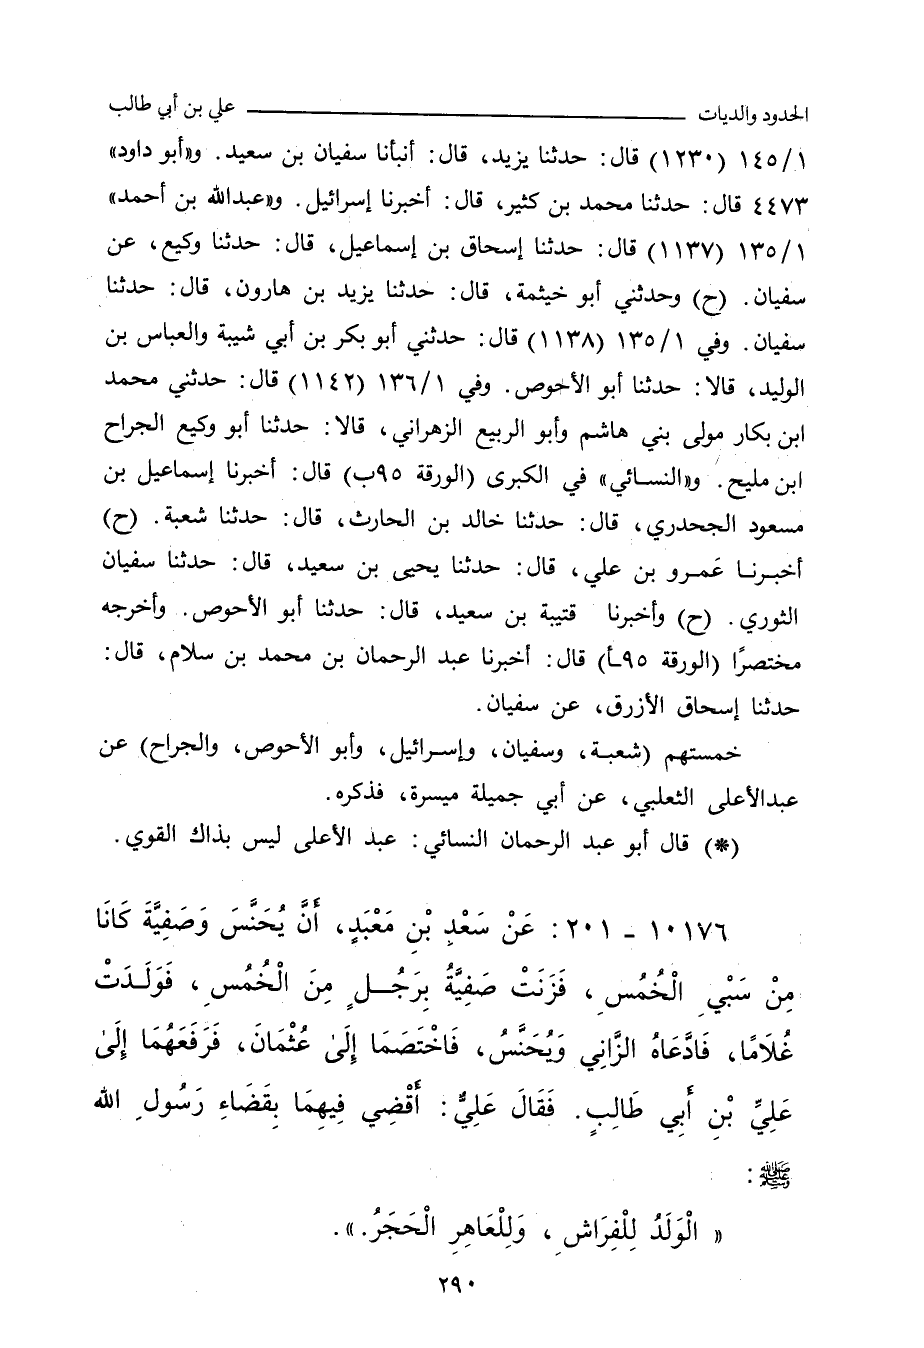 الحدود والديات علي بن أبي طالب
١٤٥/١ (١٢٣٠) قال: حدثنا يزيد، قال: أنبأنا سفيان بن سعيد. و«أبو داود»
٤٤٧٣ قال: حدثنا محمد بن كثير، قال: أخبرنا إسرائيل. و«عبدالله بن أحمد»
١٣٥/١ (١١٣٧) قال: حدثنا إسحاق بن إسماعيل، قال: حدثنا وكيع، عن
سفيان. (ح) وحدثني أبو خيثمة، قال: حدثنا يزيد بن هارون، قال: حدثنا
سفيان. وفي ١٣٥/١ (١١٣٨) قال: حدثني أبو بكر بن أبي شيبة والعباس بن
الوليد، قالا: حدثنا أبو الأحوص. وفي ١٣٦/١ (١١٤٢) قال: حدثني محمد
ابن بكار مولى بني هاشم وأبو الربيع الزهراني، قالا: حدثنا أبو وكيع الجراح
ابن مليح. و«النسائي» في الكبرى (الورقة ٩٥ب) قال: أخبرنا إسماعيل بن
مسعود الجحدري، قال: حدثنا خالد بن الحارث، قال: حدثنا شعبة. (ح)
أخبرنا عَمرو بن علي، قال: حدثنا يحيى بن سعيد، قال: حدثنا سفيان
الثوري. (ح) وأخبرنا قتيبة بن سعيد، قال: حدثنا أبو الأحوص. وأخرجه
مختصرًا (الورقة ٩٥ـأ) قال: أخبرنا عبد الرحمان بن محمد بن سلام، قال:
حدثنا إسحاق الأزرق، عن سفيان.
خمستهم (شعبة، وسفيان، وإسرائيل، وأبو الأحوص، والجراح) عن
عبدالأعلى الثعلبي، عن أبي جميلة ميسرة، فذكره.
(*) قال أبو عبد الرحمان النسائي: عبد الأعلى ليس بذاك القوي.
١٠١٧٦ - ٢٠١: عَنْ سَعْدِ بْنِ مَعْبَدٍ، أَنَّ يُحَنَّسَ وَصَفِيَّةَ كَانَا
مِنْ سَبْيِ الْخُمُسِ، فَزَنَتْ صَفِيَّةُ بِرَجُلٍ مِنَ الْخُمُسِ، فَوَلَدَتْ
غُلَامًا، فَادَّعَاهُ الزَّانِي وَيُحَنَّسُ، فَاخْتَصَمَا إِلَىٰ عُثْمَانَ، فَرَفَعَهُمَا إِلَىٰ
عَلِيِّ بْنِ أَبِي طَالِبٍ. فَقَالَ عَلِيٌّ: أَقْضِي فِيهِمَا بِقَضَاءِ رَسُولِ الله
ﷺ:
« الْوَلَدُ لِلْفِرَاشِ، وَلِلْعَاهِرِ الْحَجَرُ.».
٢٩٠